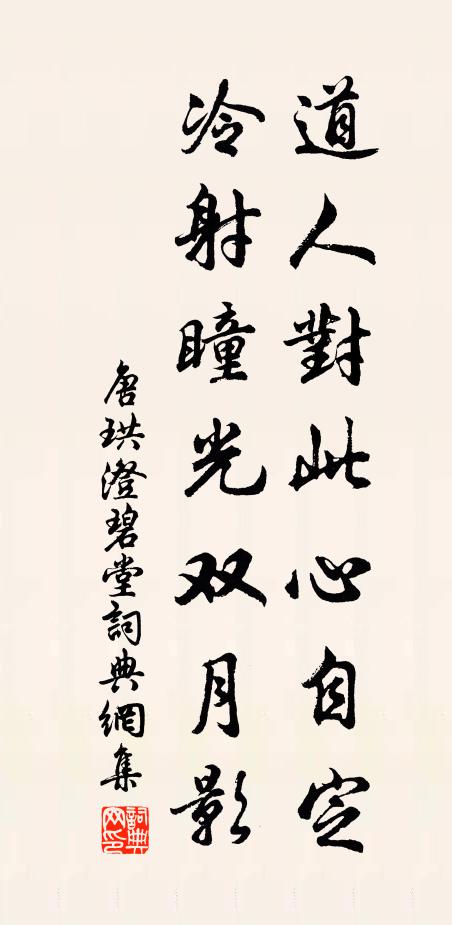 道人對此心自定
冷射瞳光双月影
唐珙澄碧堂詞典網集
詞典
网印